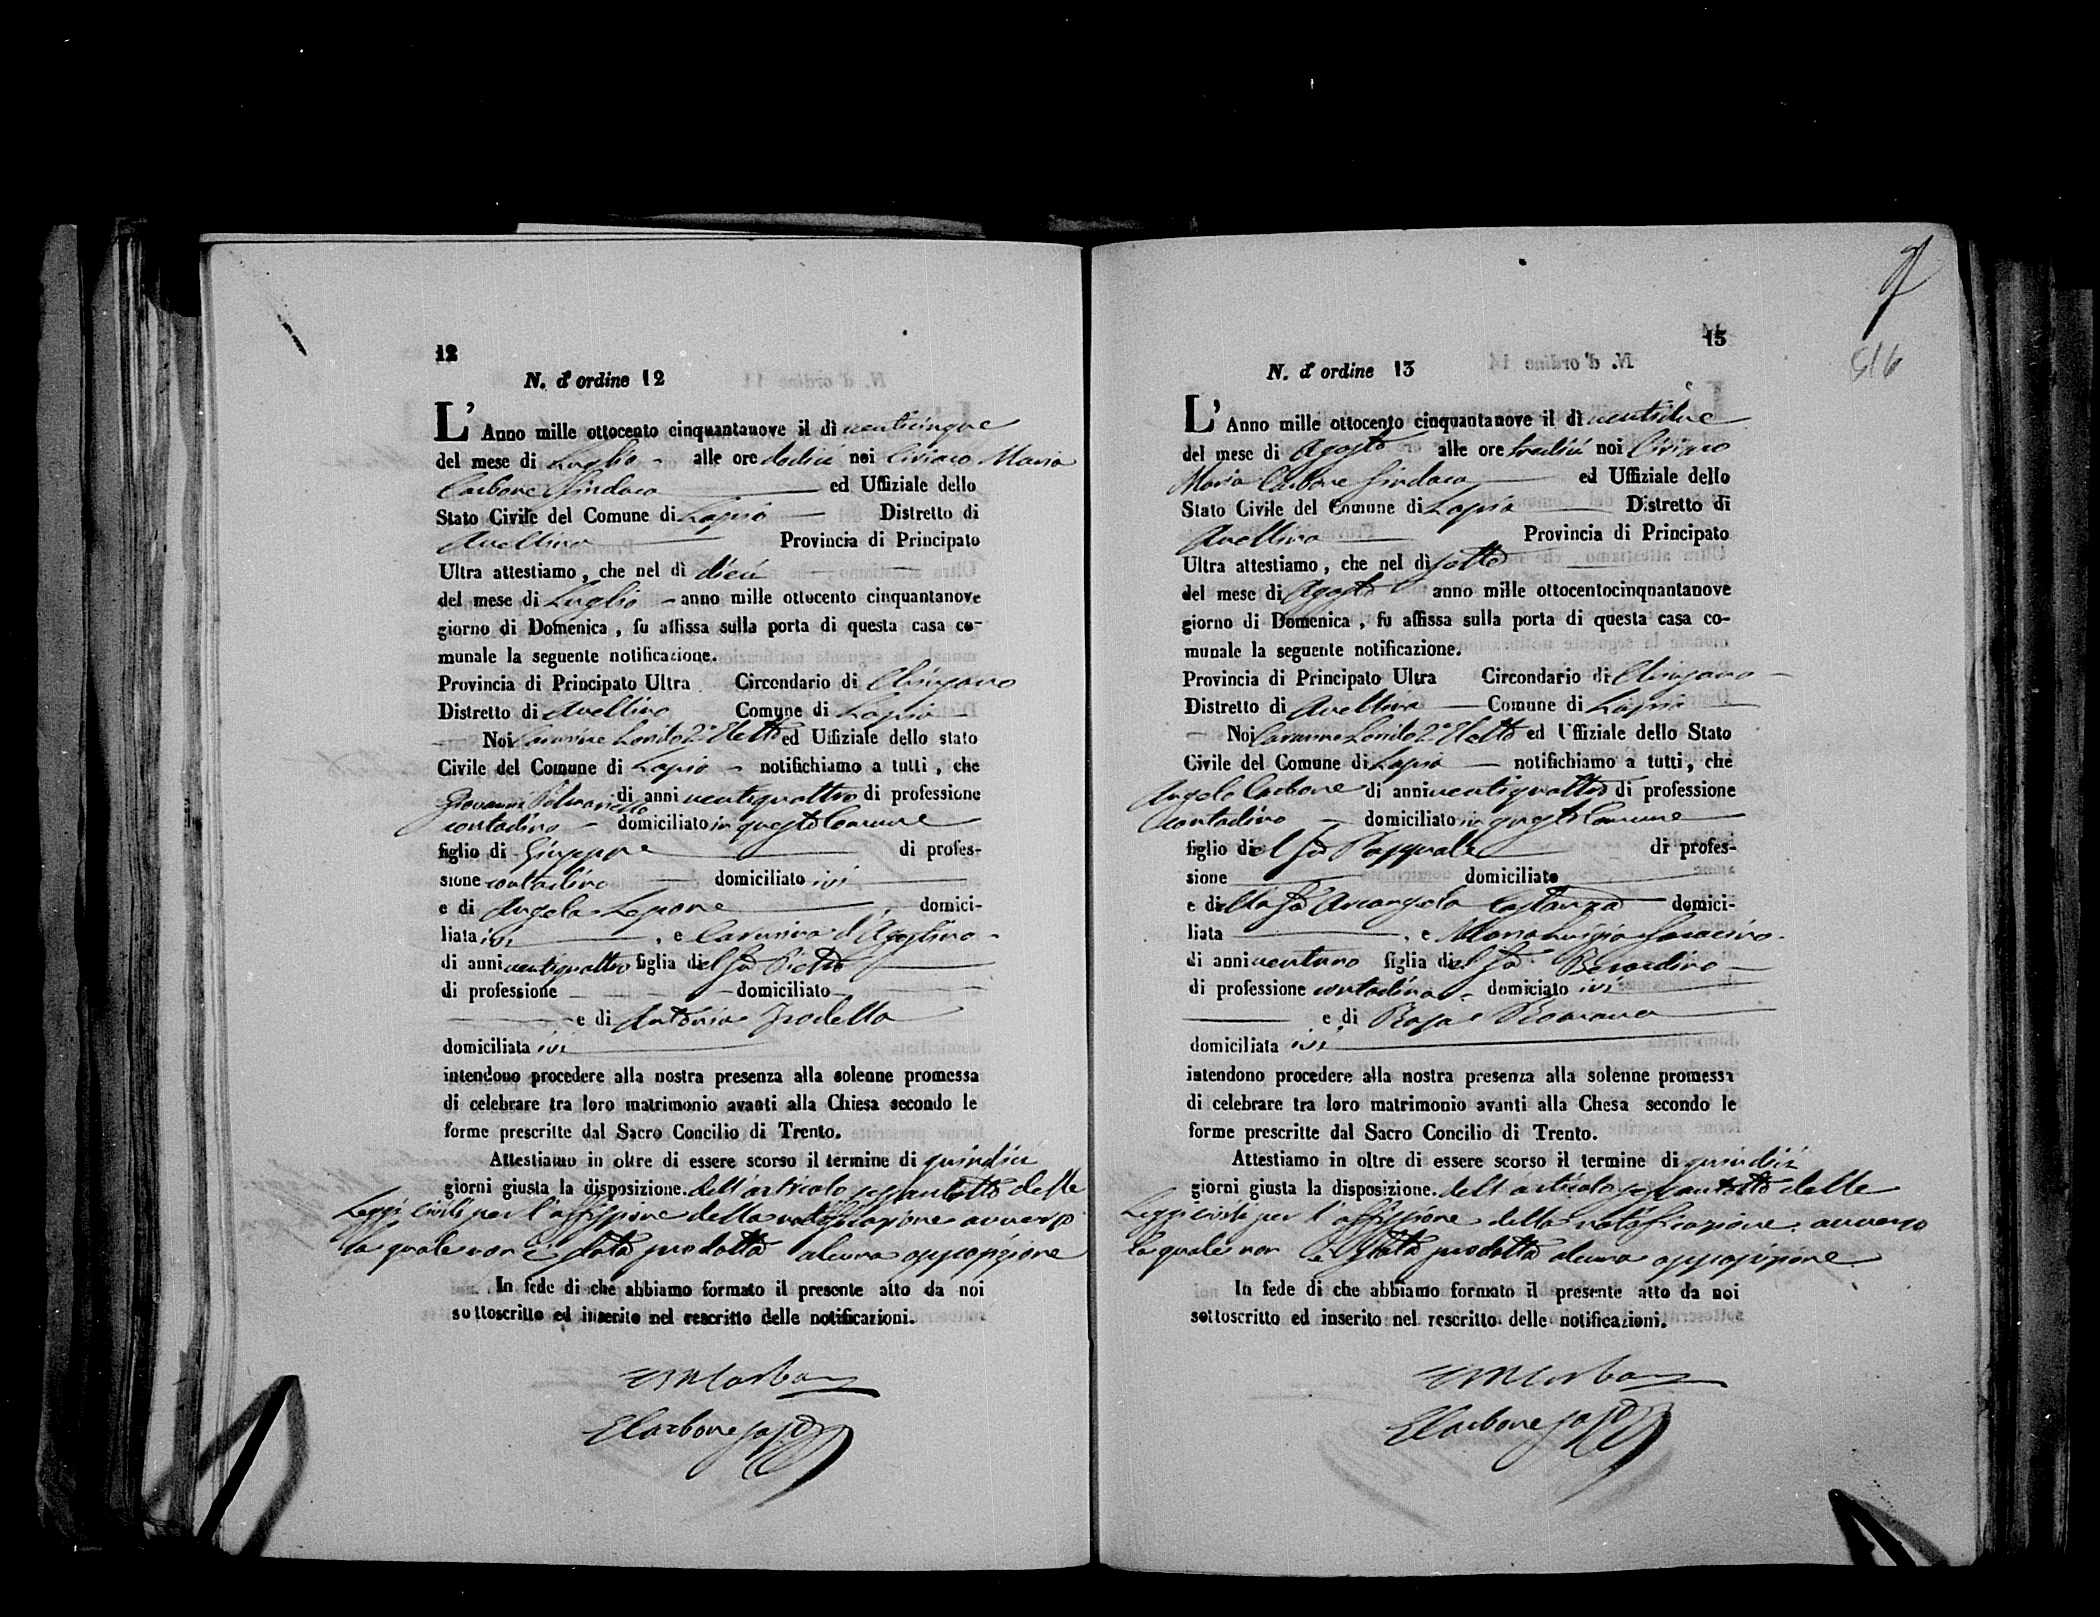 12
N. d'ordine 12
L'Anno mille ottocento cinquantanove il dì venticinque
del mese di Luglio alle ore dodici noi Ciriaco Maria
Carbone Sindaco ed Uffiziale dello
Stato Civile del Comune di Lapio Distretto di
Avellino Provincia di Principato
Ultra attestiamo, che nel dì dieci
del mese di Luglio anno mille ottocento cinquantanove
giorno di Domenica, fu affissa sulla porta di questa casa co-
munale la seguente notificazione.
Provincia di Principato Ultra Circondario di Chiusano
Distretto di Avellino Comune di Lapio
Noi Carmine 2° Eletto ed Uffiziale dello stato
Civile del Comune di Lapio notifichiamo a tutti, che
Giovanni di anni ventiquattro di professione
contadino domiciliato in questo Comune
figlio di Giuseppe di profes-
sione contadino domiciliato ivi
e di Angela Lepore domici-
liata ivi, e Carmina d'Agostino
di anni ventiquattro figlia del fù Pietro
di professione domiciliato
e di Antonia
domiciliata ivi
intendono procedere alla nostra presenza alla solenne promessa
di celebrare tra loro matrimonio avanti alla Chiesa secondo le
forme prescritte dal Sacro Concilio di Trento.
Attestiamo in oltre di essere scorso il termine di quindici
giorni giusta la disposizione dell'articolo sessantotto delle
Leggi Civili per l'affissione della notificazione avverso
la quale non è stata prodotta alcuna opposizione
In fede di che abbiamo formato il presente atto da noi
sottoscritto ed inserito nel rescritto delle notificazioni.
CM Carbone
Carbone
13
516
N. d'ordine 13
L'Anno mille ottocento cinquantanove il dì ventidue
del mese di Agosto alle ore tredici noi Ciriaco
Maria Carbone Sindaco ed Uffiziale dello
Stato Civile del Comune di Lapio Distretto di
Avellino Provincia di Principato
Ultra attestiamo, che nel dì sette
del mese di Agosto anno mille ottocentocinquantanove
giorno di Domenica, fu affissa sulla porta di questa casa co-
munale la seguente notificazione.
Provincia di Principato Ultra Circondario di Chiusano
Distretto di Avellino Comune di Lapio
Noi Carmine 2° Eletto ed Uffiziale dello Stato
Civile del Comune di Lapio notifichiamo a tutti, che
Angelo Carbone di anni ventiquattro di professione
Contadino domiciliato in questo Comune
figlio del fù Pasquale di profes-
sione domiciliato
e della fù Arcangela Costanza domici-
liata, e Maria Luigia Saracino
di anni ventuno figlia del fù Berardino
di professione contadina domiciato ivi
e di Rosa Romano
domiciliata ivi
intendono procedere alla nostra presenza alla solenne promessa
di celebrare tra loro matrimonio avanti alla Chesa secondo le
forme prescritte dal Sacro Concilio di Trento.
Attestiamo in oltre di essere scorso il termine di quindici
giorni giusta la disposizione dell'articolo sessantotto delle
Leggi civili per l'affissione della notificazione avverso
la quale non è stata prodotta alcuna opposizione
In fede di che abbiamo formato il presente atto da noi
sottoscritto ed inserito nel rescritto delle notificazioni.
CM Carbone
Carbone